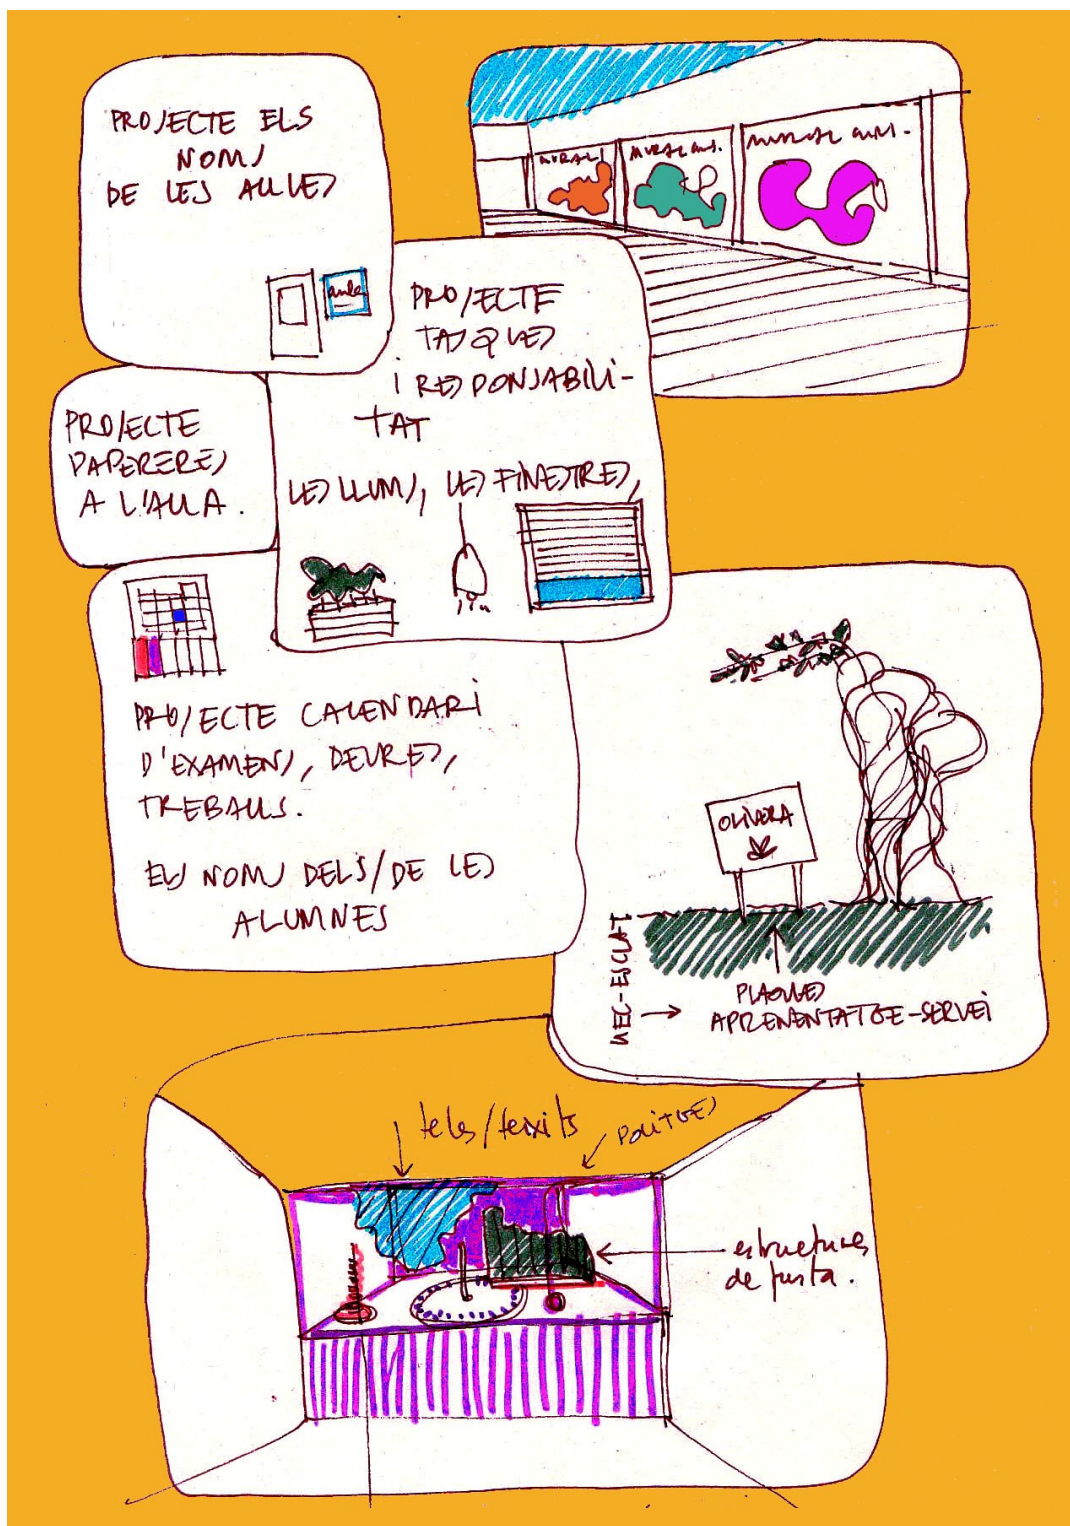 PROJECTE ELS
NOMS
DE LES AULES
aula
MURAL
MURAL
MURAL
PROJECTE
TASQUES
I RESPONSABILI-
TAT
LES LLUMS, LES FINESTRES,
PROJECTE
PAPERERES
A L'AULA.
PROJECTE CALENDARI
D'EXAMENS, DEURES,
TREBALLS.
ELS NOMS DELS/DE LES
ALUMNES
OLIVERA
PLAQUES
APRENENTATGE-SERVEI
teles/teixits
POLITGES
estructures
de fusta.